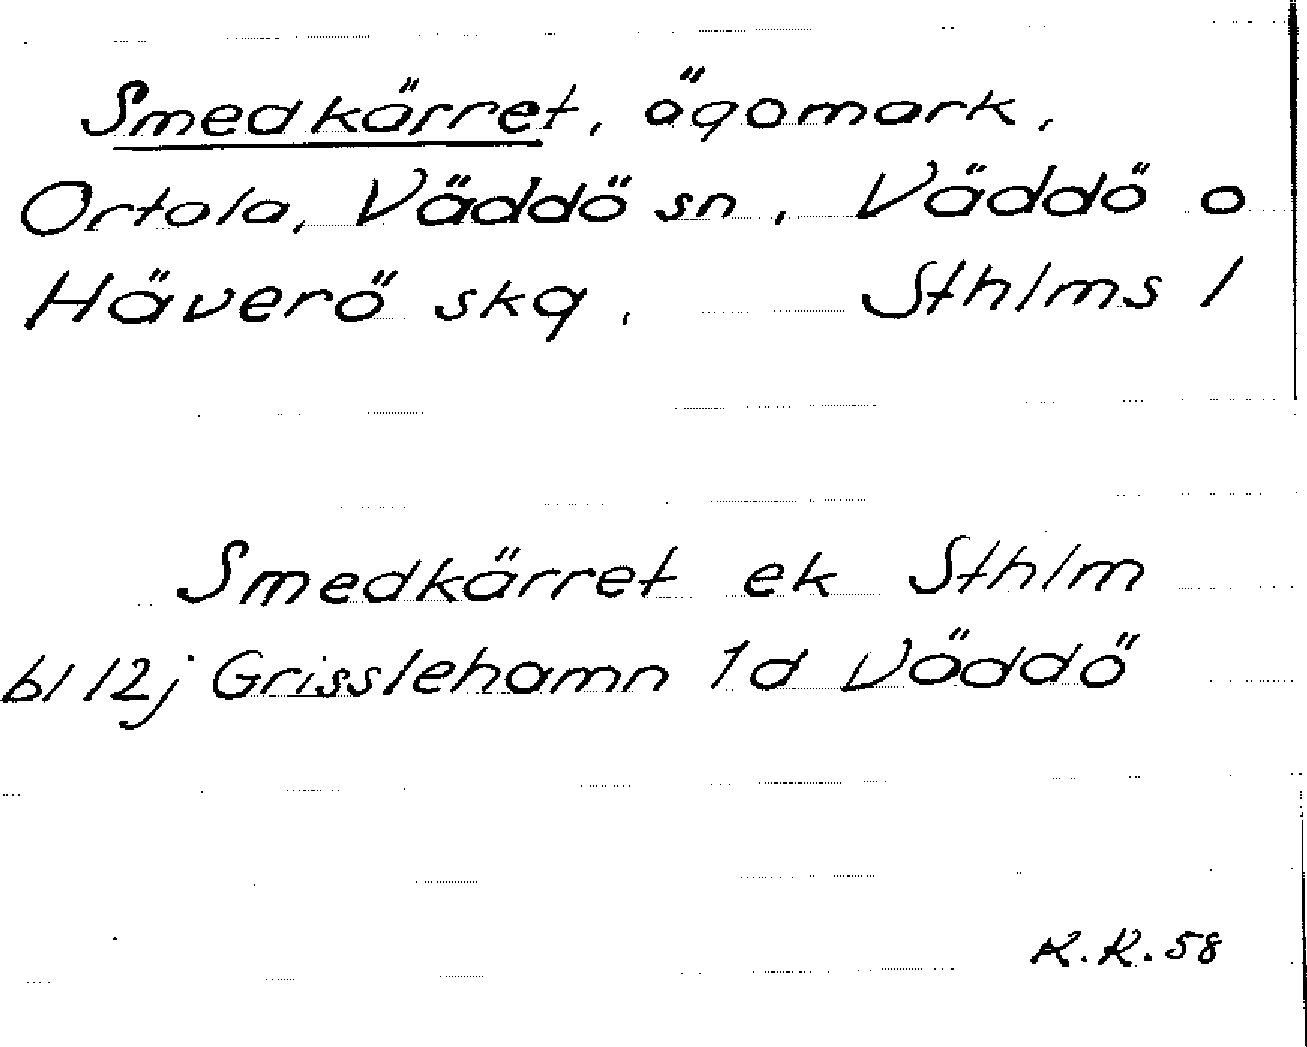 Smedkärret, ägomark,
Ortala, Väddö sn, Väddö o
Häverö skg, Sthlms l
Smedkärret ek Sthlm
bl 12j Grisslehamn 1d Väddö
R.R.58